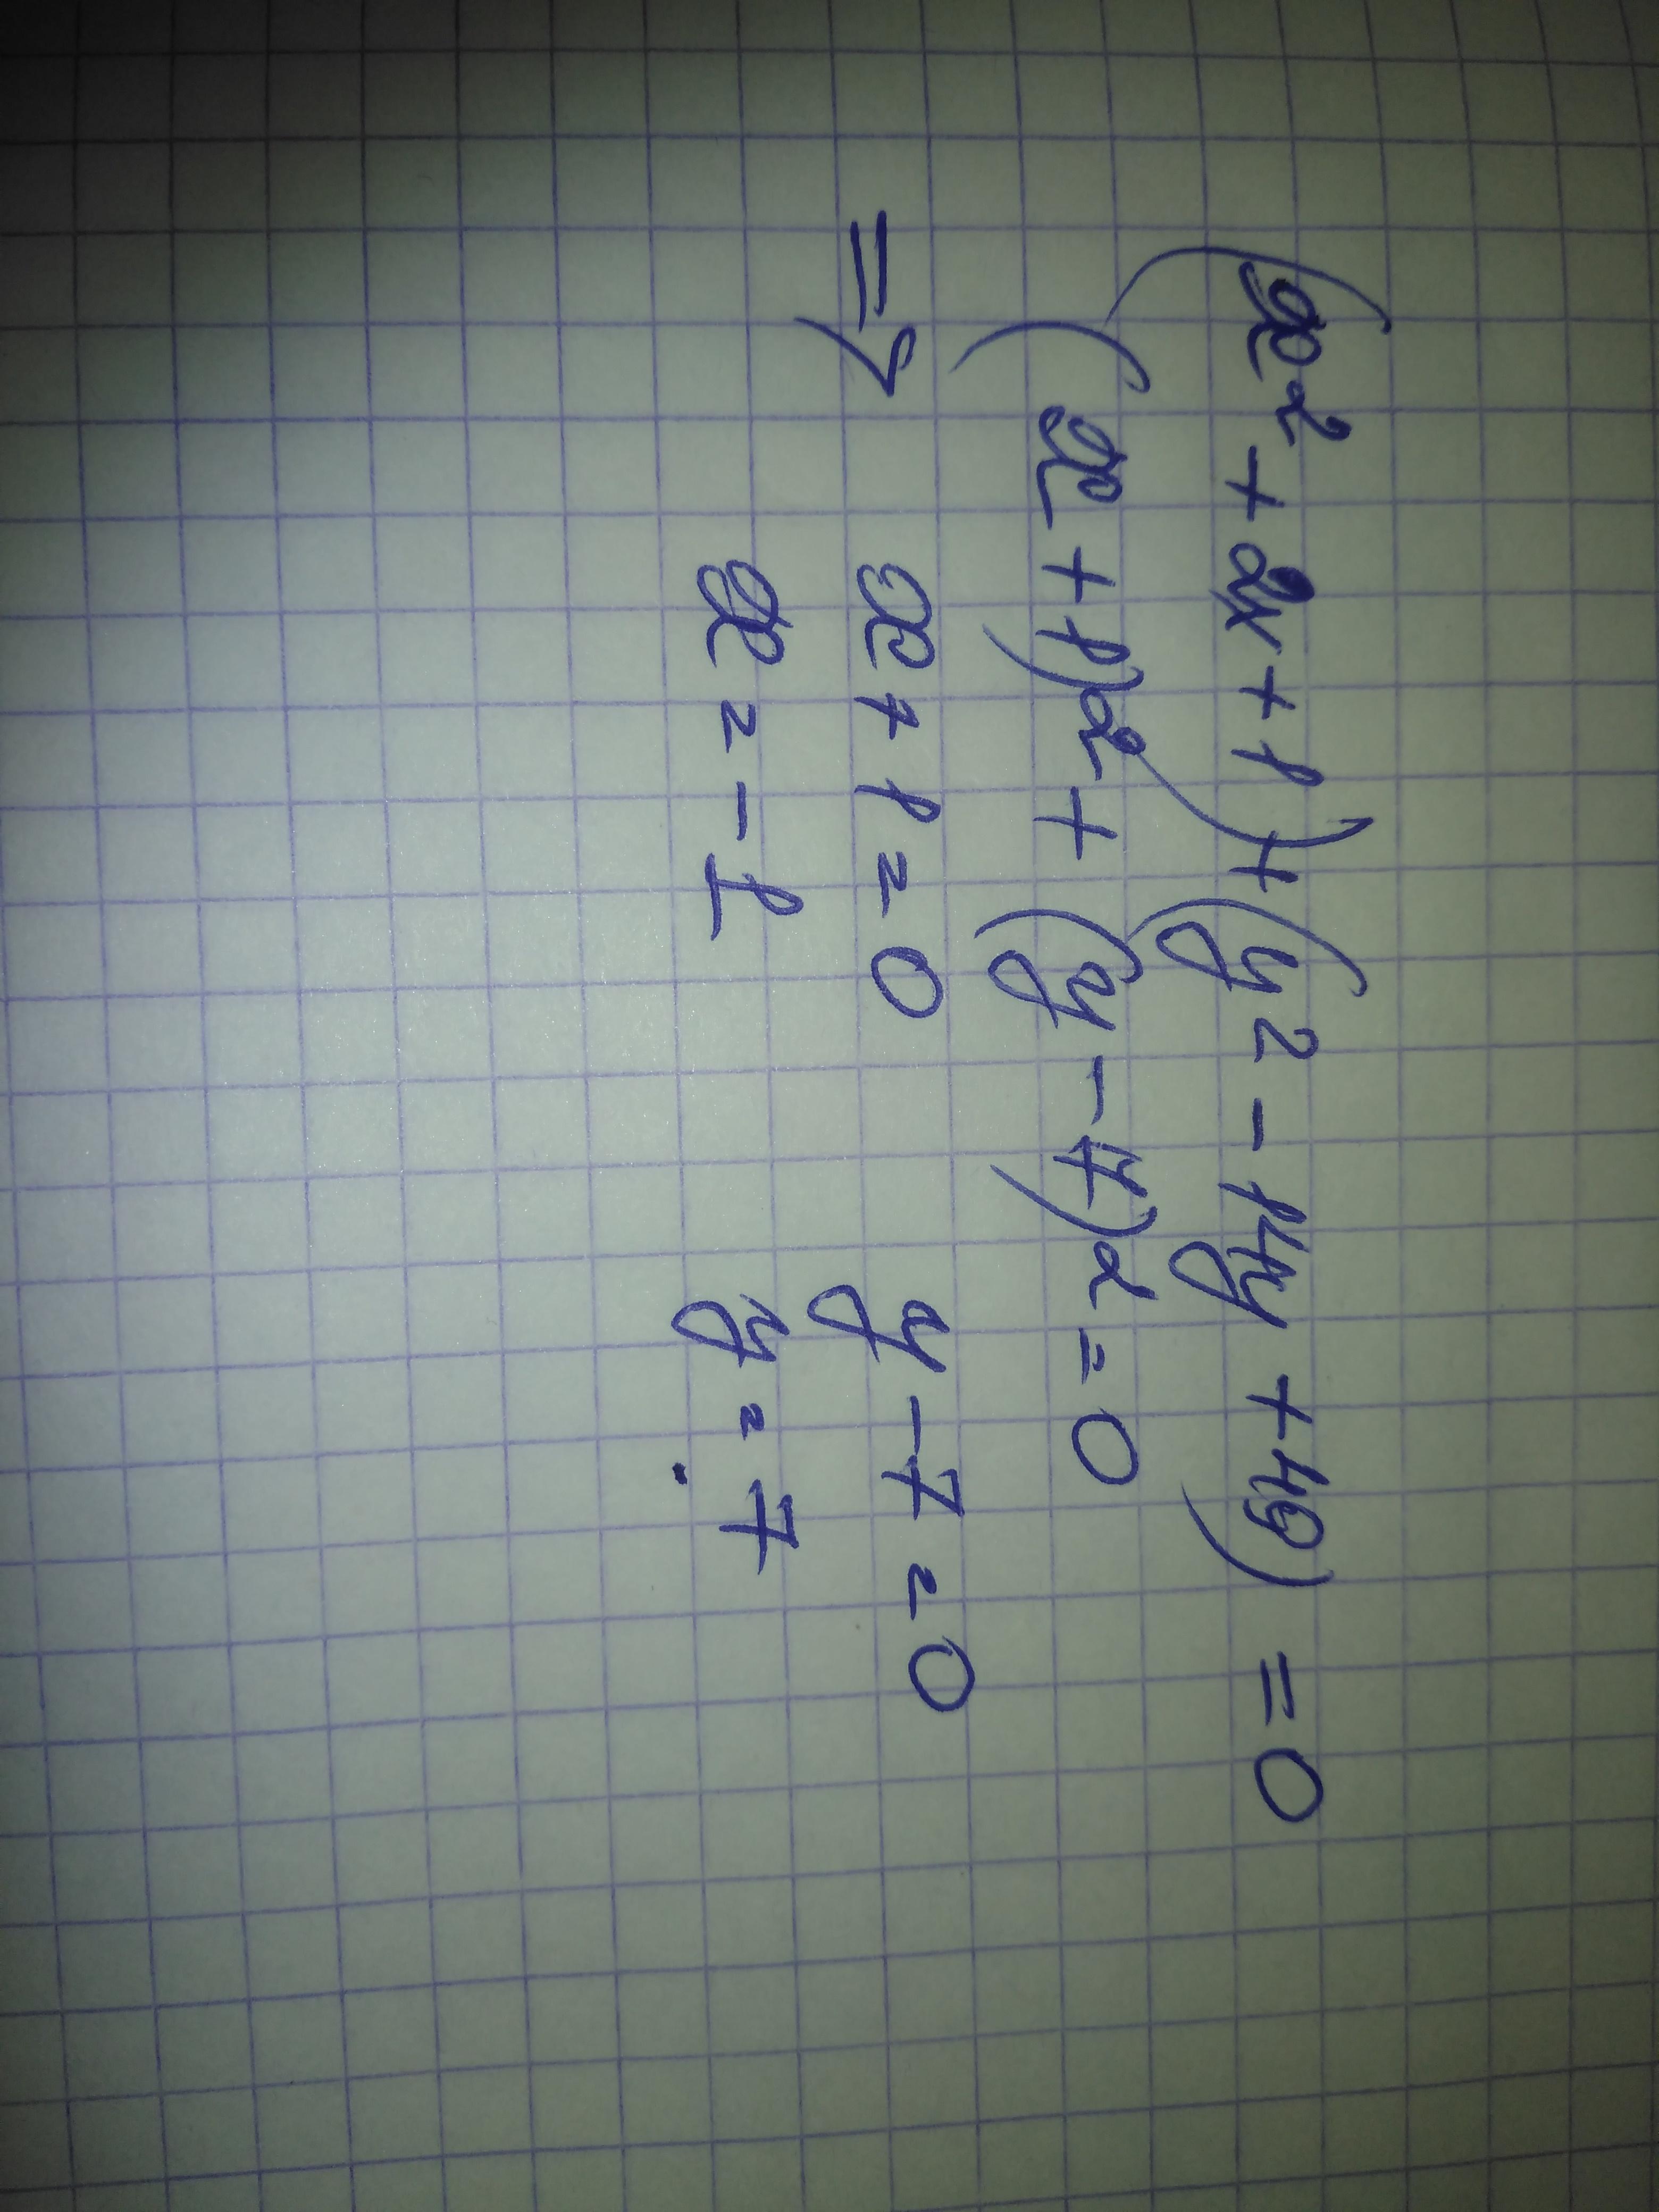 (x² + 2x + 1) + (y² - 14y + 49) = 0
(x + 1)² + (y - 7)² = 0
=> x + 1 = 0 y - 7 = 0
x = - 1 y = 7